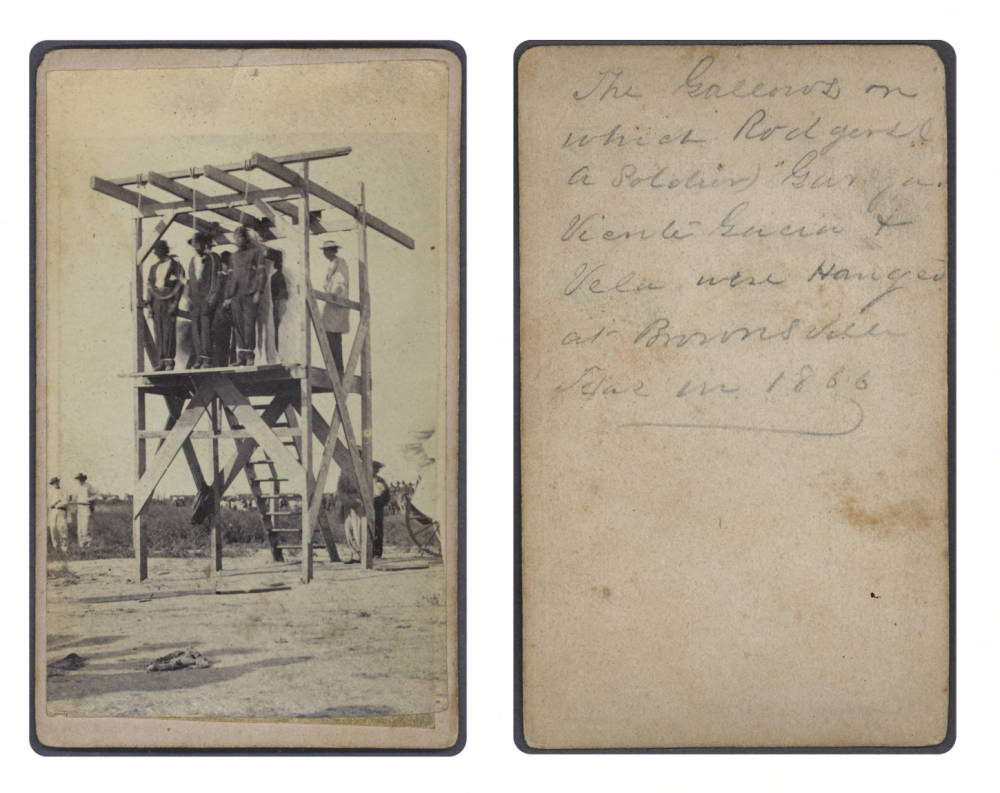 The Gallows on
which Rodgers (
A Soldier) Garza.
Vicente Garcia &
Vela were Hanged
at Brownsville
Texas in 1866